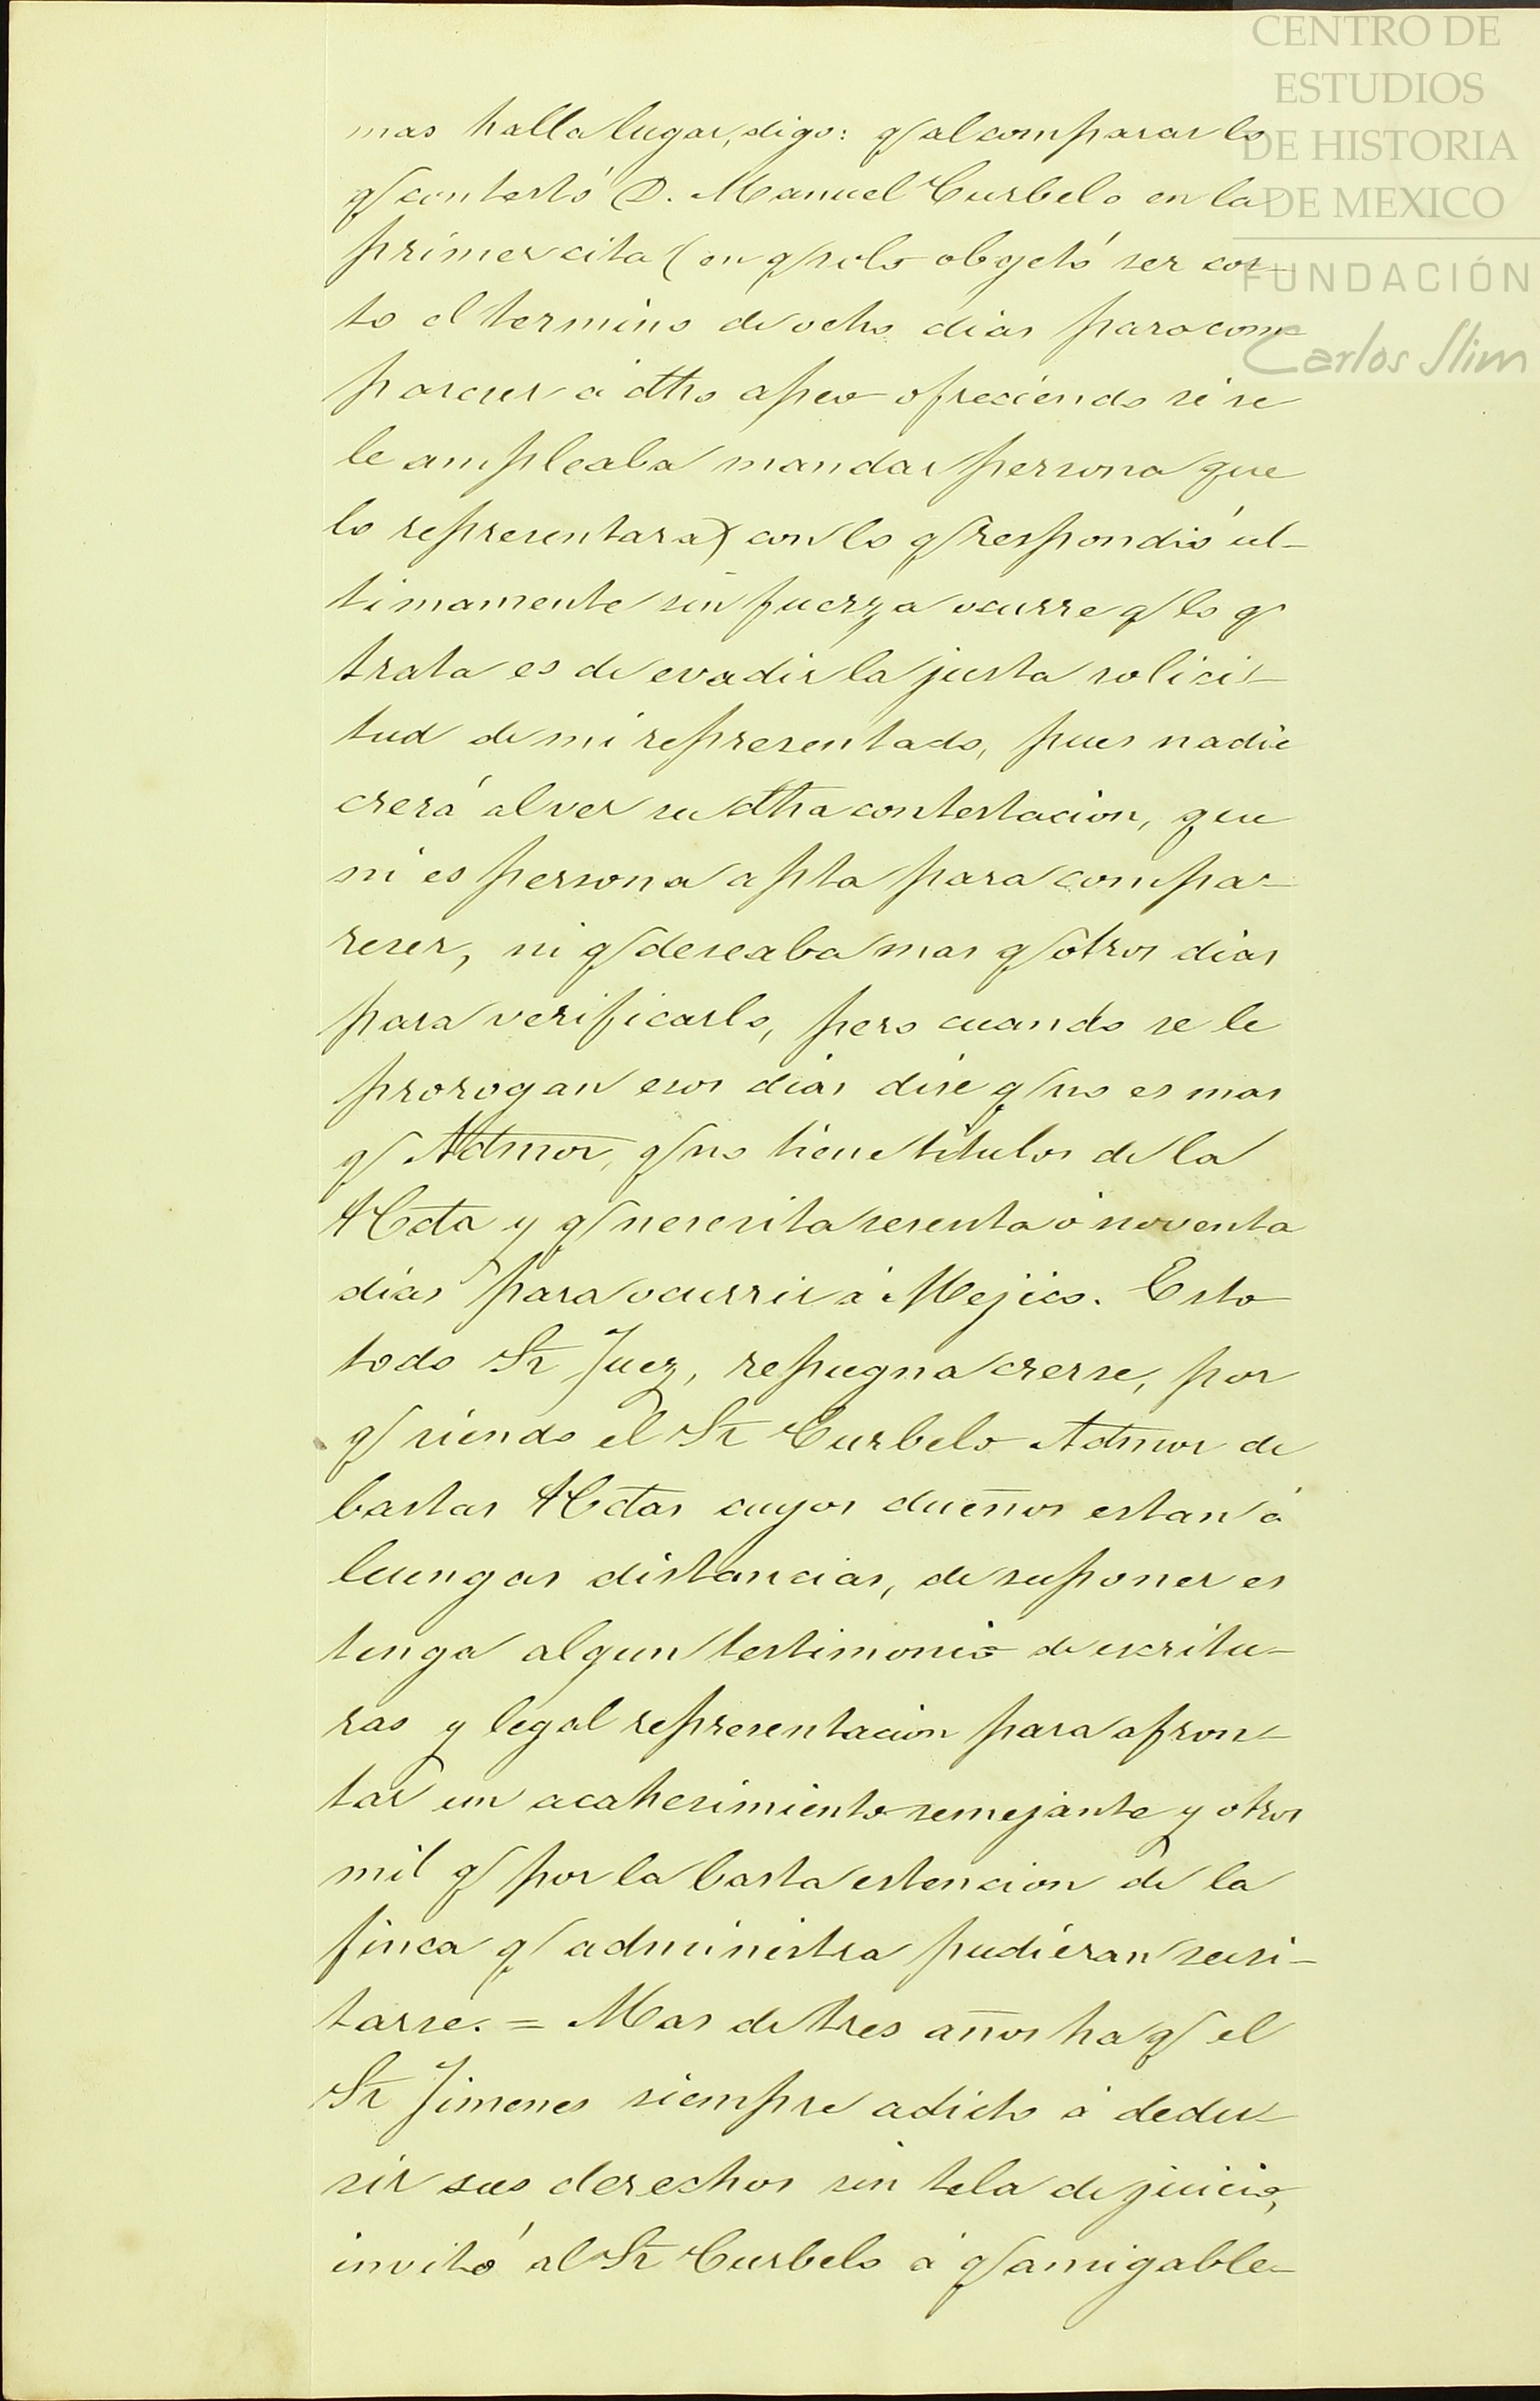 CENTRO DE
ESTUDIOS
DE HISTORIA
DE MEXICO
FUNDACIÓN
Carlos Slim
mas halla lugar, digo: q/ al comparar lo
q/ contestó D. Manuel Curbelo en la
primer cita (en q/ solo objetó ser cor-
to el termino de ocho dias para com
parecer á dho apeo ofreciendo si se
le ampleaba mandar persona que
lo representara) con lo q/ respondió úl-
timamente sin fuerza ocurre q/ lo q/
trata es de evadir la justa solici-
tud de mi representado, pues nadie
crerá al ver su dha contestacion, que
ni es persona apta para compa-
reser, ni q/ deseaba mas q/ otros dias
para verificarlo, pero cuando se le
prorogan esos dias dise q/ no es mas
q/ Admor, q/ no tiene titulos de la
Hcda y q/ nesesita sesenta ó noventa
dias para ocurrir á Mejico. Esto
todo Sr Juez, repugna crerse, por
q/ siendo el Sr Curbelo Admor de
bastas Hcdas cuyos dueños estan á
luengas distancias, de suponer es
tenga algun testimonio de escritu-
ras y legal representacion para afron-
tar un acahesimiento semejante y otros
mil q/ por la basta estencion de la
finca q/ administra pudieran susi-
tarse. = Mas de tres años ha q/ el
Sr Jimenes siempre adicto á dedu-
sir sus derechos sin tela de juicio,
invitó al Sr Curbelo á q/ amigable-